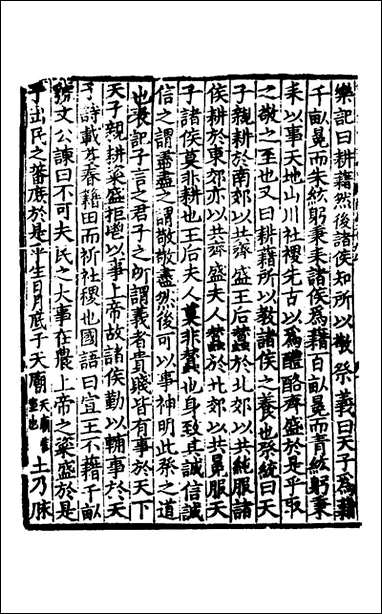 樂記曰耕藉然後諸侯知所以敬祭義曰天子為藉
千畝冕而朱紘躬秉耒諸侯為藉百畝冕而青紘躬秉
耒以事天地山川社稷先古以為醴酪齊盛於是乎取
之敬之至也又曰耕藉所以教諸侯之養也祭統曰天
子親耕於南郊以共齊盛王后蠶於北郊以共純服諸
侯耕於東郊亦以共齊盛夫人蠶於北郊以共冕服天
子諸侯莫非耕也王后夫人莫非蠶也身致其誠信誠
信之謂盡盡之謂敬敬盡然後可以事神明此祭之道
也表記子言之君子之所謂義者貴賤皆有事於天下
天子親耕粢盛秬鬯以事上帝故諸侯勤以輔事於天
子詩載芟春籍田而祈社稷也國語曰宣王不藉千畝
虢文公諫曰不可夫民之大事在農上帝之粢盛於是
乎出民之蕃庶於是乎生日月底于天廟天廟營室也土乃脉